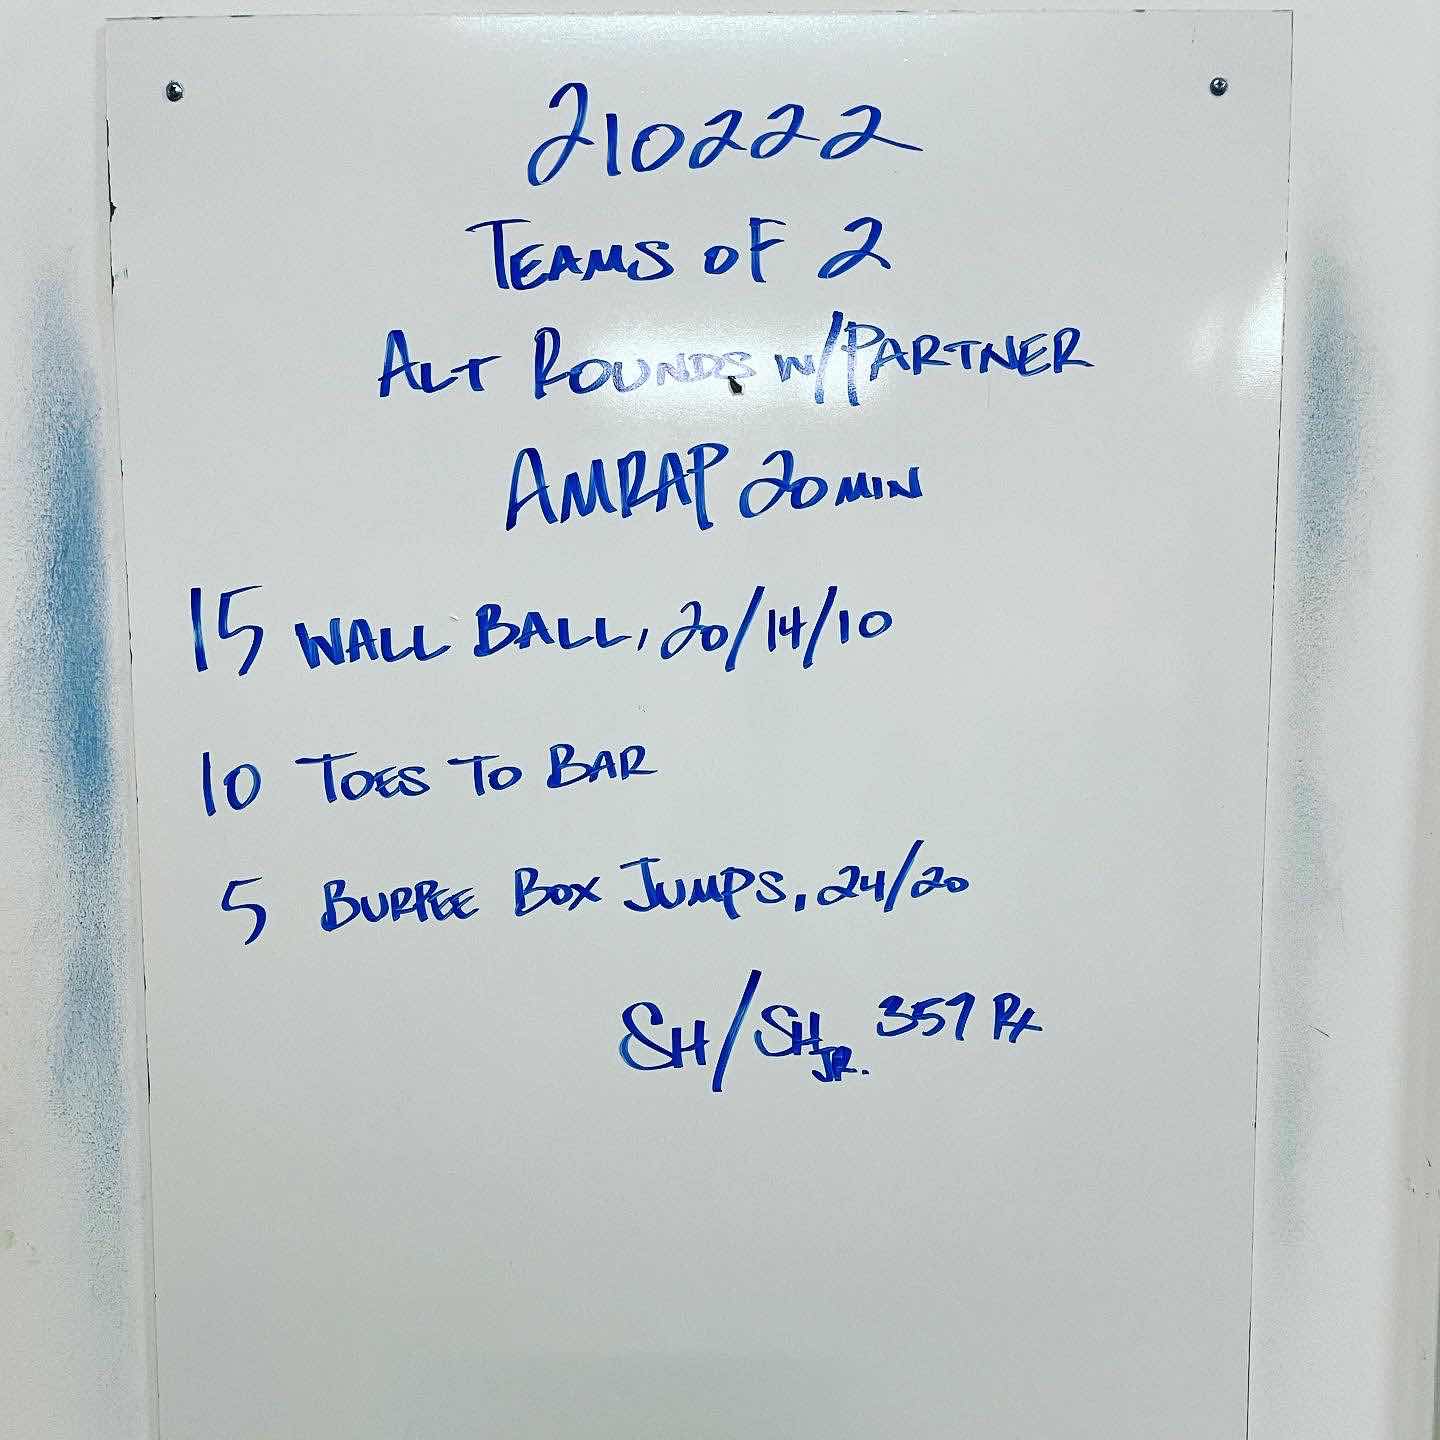 210222
TEAMS OF 2
ALT ROUNDS W/PARTNER
AMRAP 20 MIN
15 WALL BALL, 20/14/10
10 TOES TO BAR
5 BURPEE BOX JUMPS, 24/20
SH/SH JR. 357 Rx